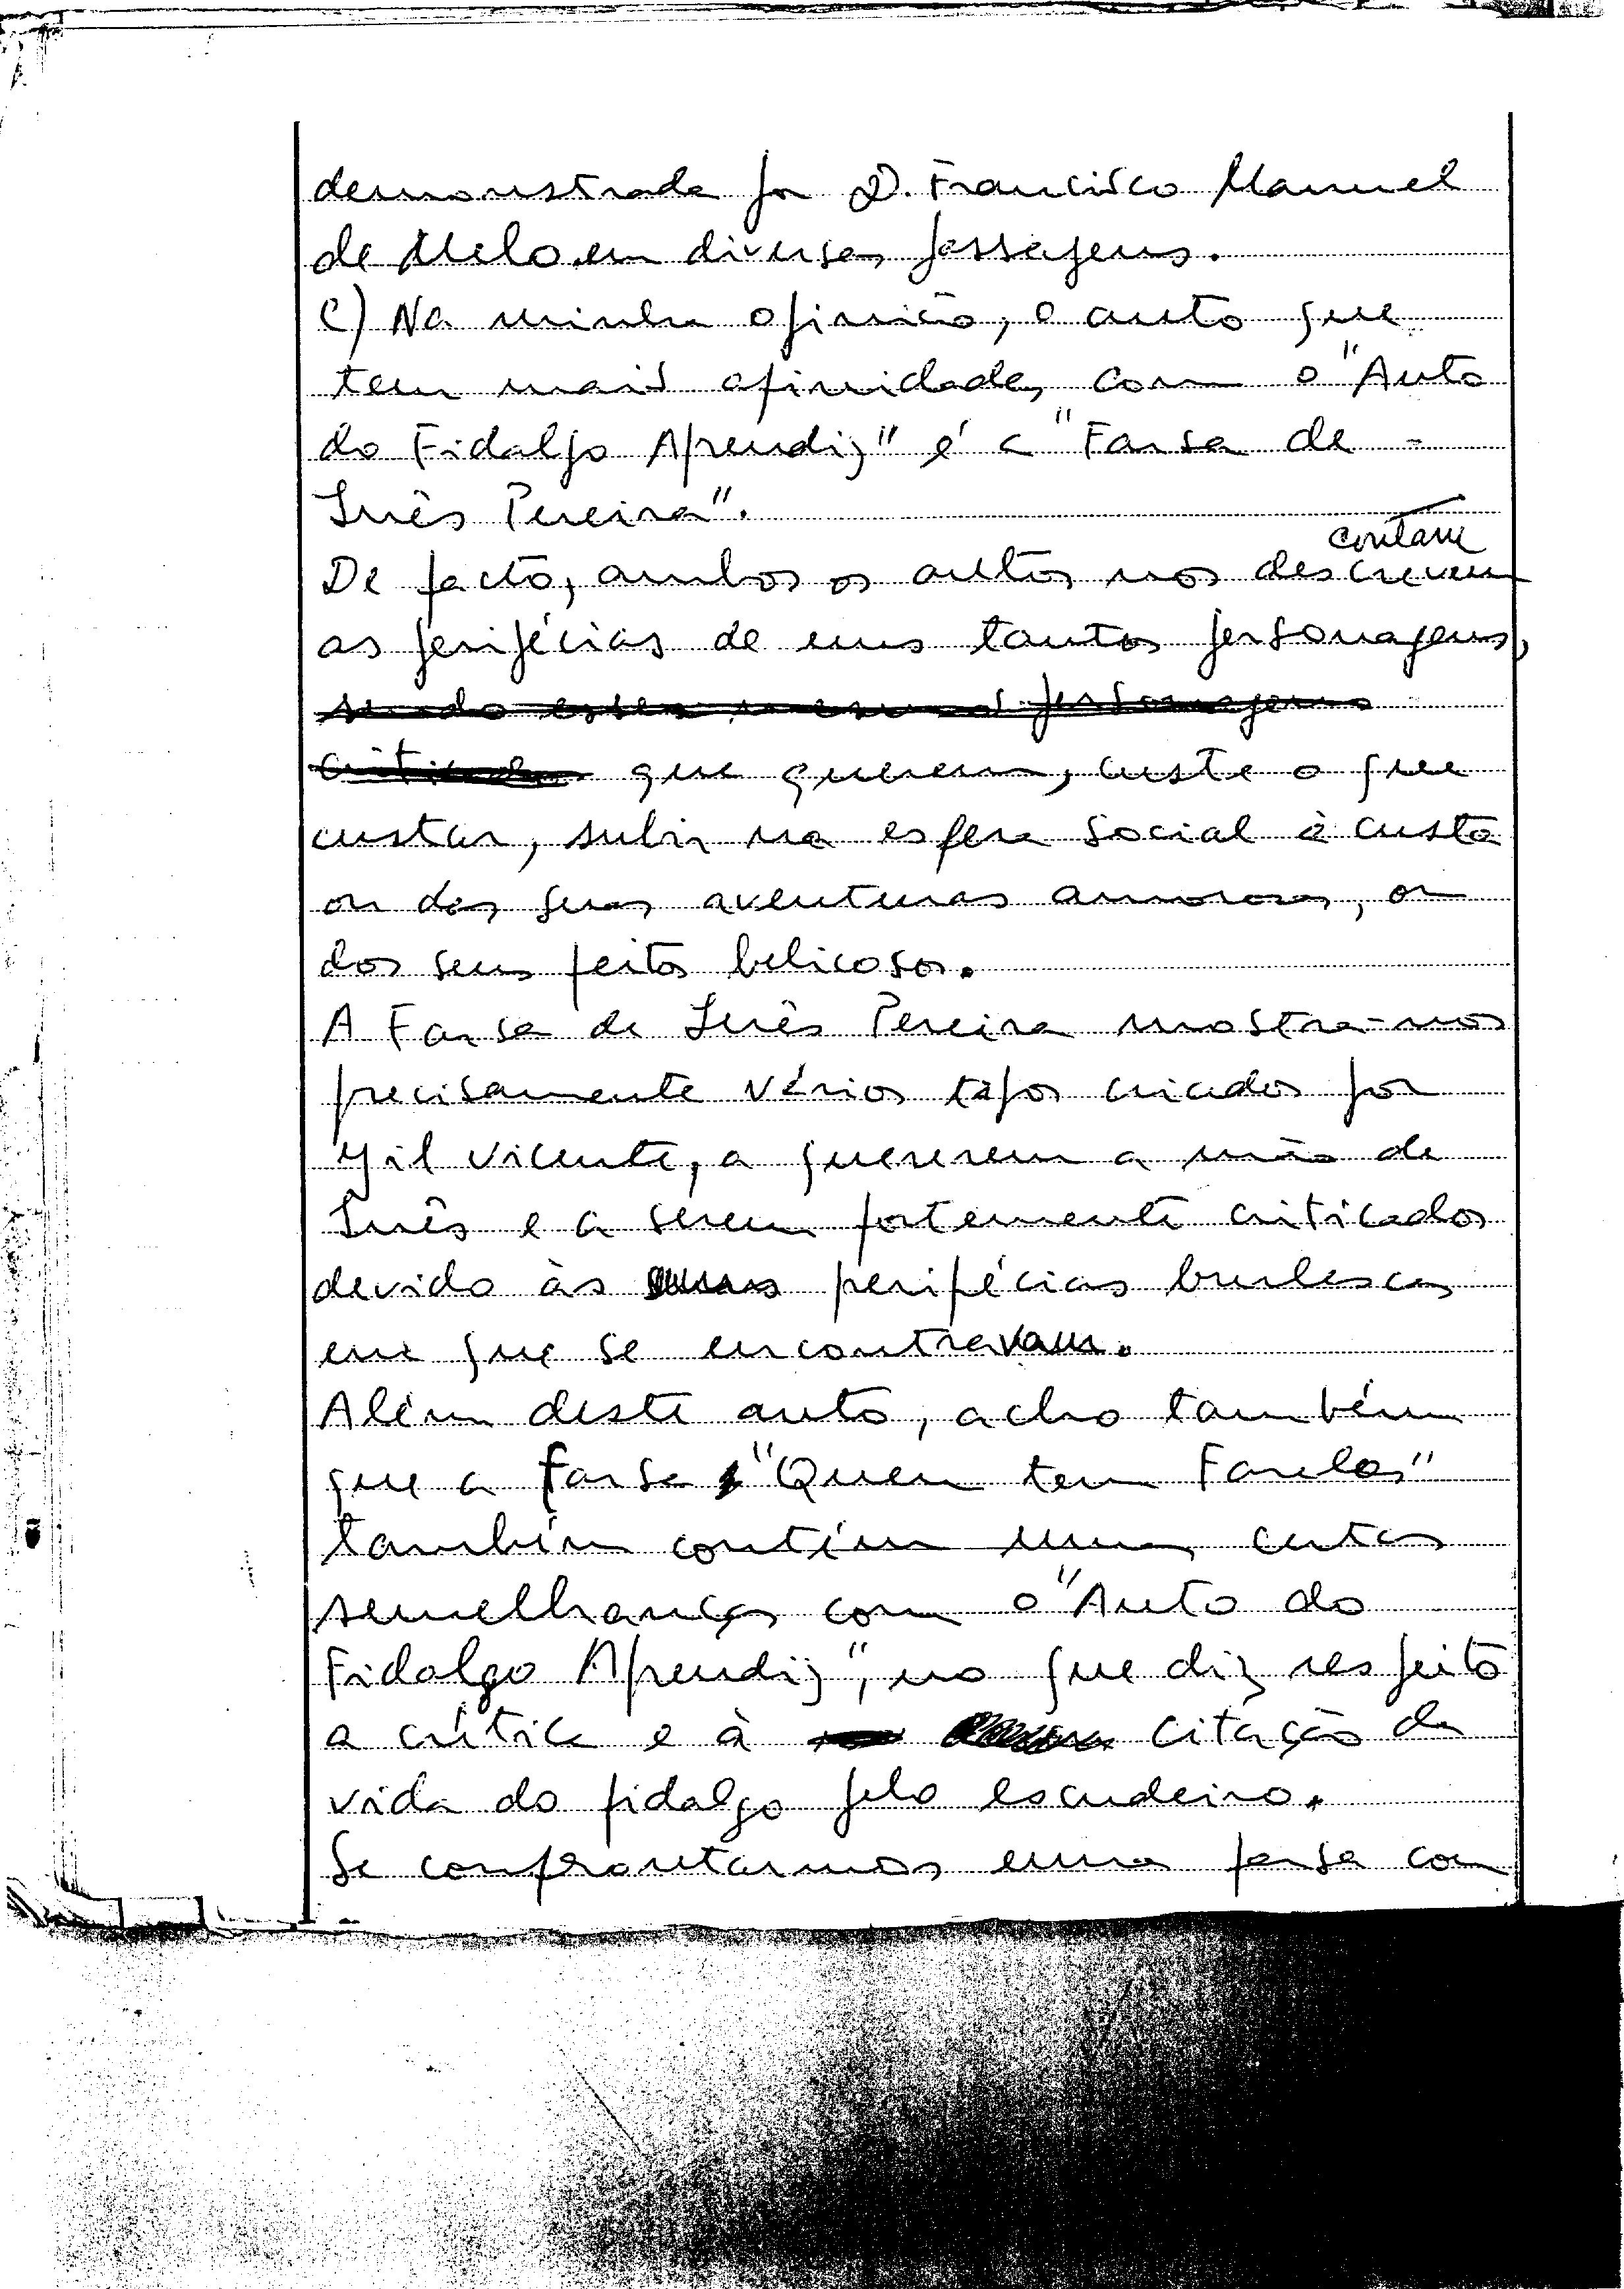 demonstrada por D. Francisco Manuel
de Melo em diversas passagens.
C) Na minha opinião, o auto que
tem mais afinidades com o "Auto
do Fidalgo Aprendiz" é a "Farsa de
Inês Pereira".
contam
De facto, ambos os autos nos descrevem
as peripécias de uns tantos personagens,
sendo estes mesmos personagens
criticados que querem, custe o que
custar, subir na esfera social à custa
ou das suas aventuras amorosas, ou
dos seus feitos belicosos.
A Farsa de Inês Pereira mostra-nos
precisamente vários tipos criados por
Gil Vicente, a quererem a mão de
Inês e a serem fortemente criticados
devido às peripécias burlescas
em que se encontravam.
Além deste auto, acho também
que a farsa "Quem tem Farelos"
também contém umas certas
semelhanças com o "Auto do
Fidalgo Aprendiz", no que diz respeito
a crítica e à citação da
vida do fidalgo pelo escudeiro.
Se confrontarmos uma farsa com